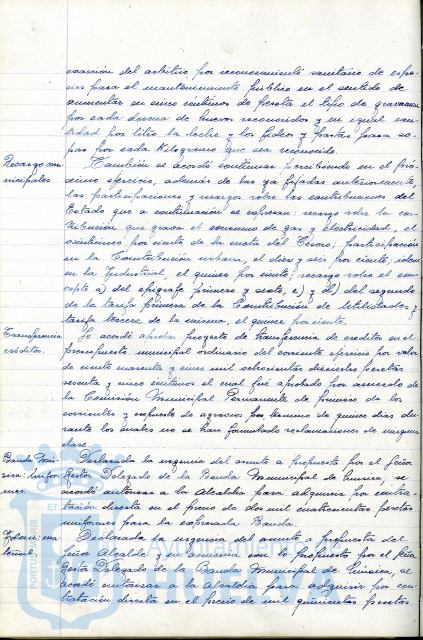 exacción del arbitrio por reconocimiento sanitario de espe-
cies para el mantenimiento público en el sentido de
aumentar en cinco céntimos de peseta el tipo de gravamen
por cada docena de huevos reconocidos y en igual can-
tidad por litro la leche y los fideos y pastas para so-
pas por cada Kilogramo que sea reconocido.
Recargos mu-
nicipales
También se acordó continuar percibiendo en el pró-
ximo ejercicio, además de las ya fijadas anteriormente,
las participaciones y recargos sobre las contribuciones del
Estado que a continuación se expresan: recargo sobre la con-
tribución que grava el consumo de gas y electricidad, el
veinticinco por ciento de la cuota del Tesoro; participación
en la Contribución urbana, el diez y seis por ciento, idem
en la Industrial, el quince por ciento; recargo sobre el con-
cepto a) del epígrafe primero y sexto, c) y d) del segundo
de la tarifa primera de la Contribución de Utilidades y
tarifa tercera de la misma, el quince por ciento.
Transferencia
créditos.
Se acordó aprobar proyecto de transferencia de créditos en el
presupuesto municipal ordinario del corriente ejercicio por valor
de ciento cuarenta y cinco mil ochocientas pesetas
sesenta y cinco céntimos el cual fué aprobado por acuerdo de
la Comisión Municipal Permanente de primero de los
corrientes y expuesto de agravios por término de quince días du-
rante los cuales no se han formulado reclamaciones de ninguna
clase.
Banda Mú-
sica: Unifor-
mes.
Declarada la urgencia del asunto a propuesta por el Señor
Gestor Delegado de la Banda Municipal de Música, se
acordó autorizar a la Alcaldía para adquirir por contra-
tación directa en el precio de dos mil cuatrocientas pesetas
uniformes para la expresada Banda.
Idem: ma-
terial.
Declarada la urgencia del asunto a propuesta del
Señor Alcalde y en armonía con lo propuesto por el Señor
Gestor Delegado de la Banda Municipal de Música, se
acordó autorizar a la Alcaldía para adquirir por con-
tratación directa en el precio de mil quinientas pesetas
Ayuntamiento de
HUELVA